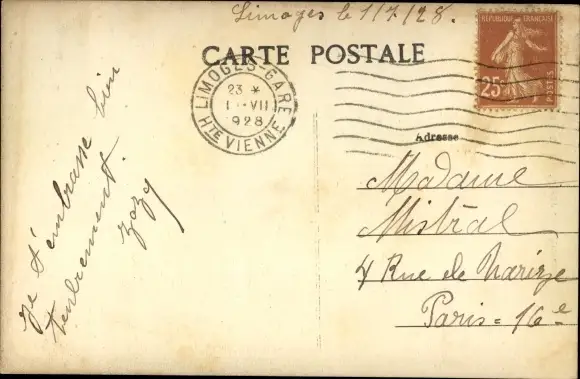 Limoges le 1/7/28.
CARTE POSTALE
RÉPUBLIQUE FRANÇAISE
25c
POSTES
LIMOGES-GARE
23 *
1 -VII
1928
HTE VIENNE
Adresse
Madame
Mistral
4 Rue de
Paris = 16e
Je t'embrasse bien
tendrement.
Zazy